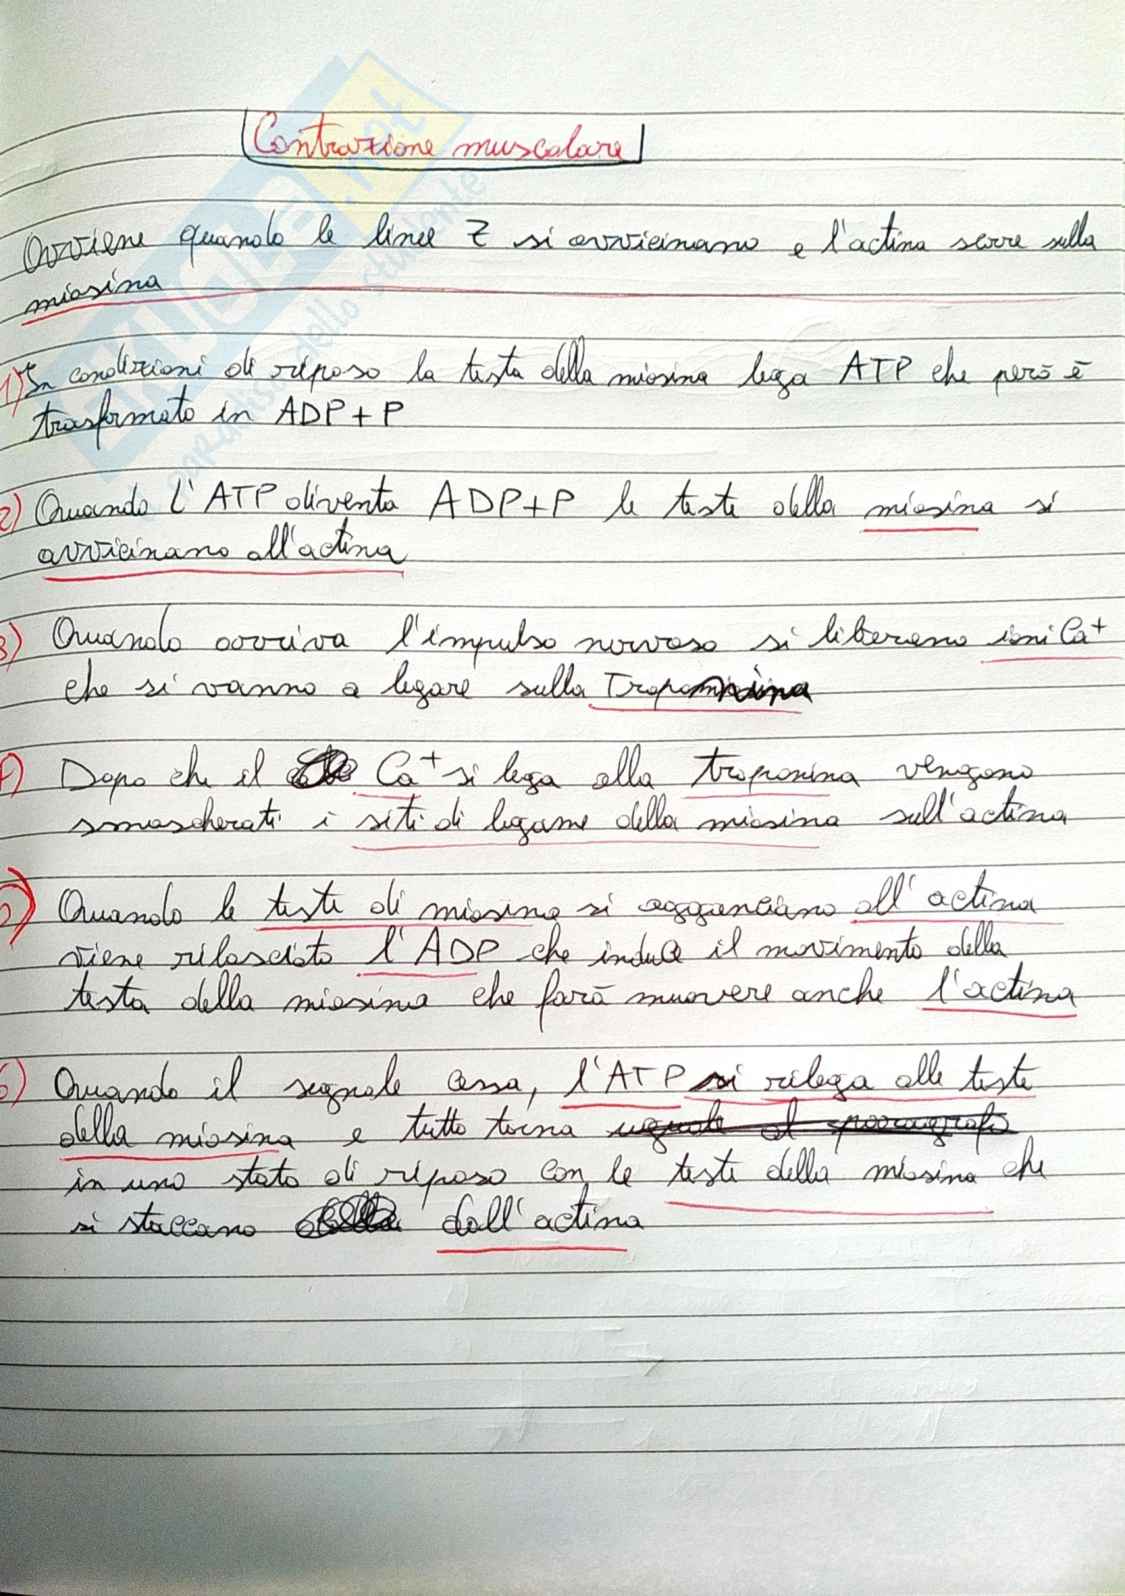 Contrazione muscolare
Avviene quando le linee Z si avvicinano e l'actina scorre sulla
miosina
1) In condizioni di riposo la testa della miosina lega ATP che però è
trasformato in ADP+P
2) Quando l'ATP diventa ADP+P le teste della miosina si
avvicinano all'actina
3) Quando arriva l'impulso nervoso si liberano ioni Ca+
che si vanno a legare sulla Troponina
4) Dopo che il Ca+ si lega alla troponina vengono
smascherati i siti di legame della miosina sull'actina
5) Quando le teste di miosina si agganciano all'actina
viene rilasciato l'ADP che induce il movimento della
testa della miosina che farà muovere anche l'actina
6) Quando il segnale cessa, l'ATP si rilega alle teste
della miosina e tutto torna
in uno stato di riposo con le teste della miosina che
si staccano dall'actina